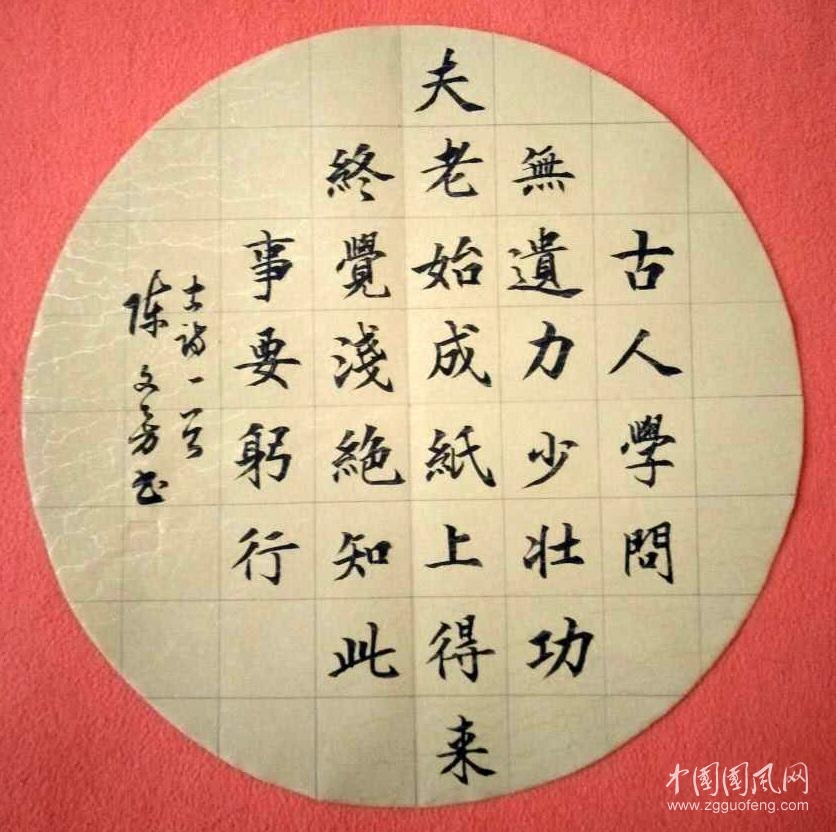 古人學問
無遺力少壯功
夫老始成紙上得来
終覺淺絕知此
事要躬行
古詩一首
陳文芳书
中国国风网
www.zgguofeng.com